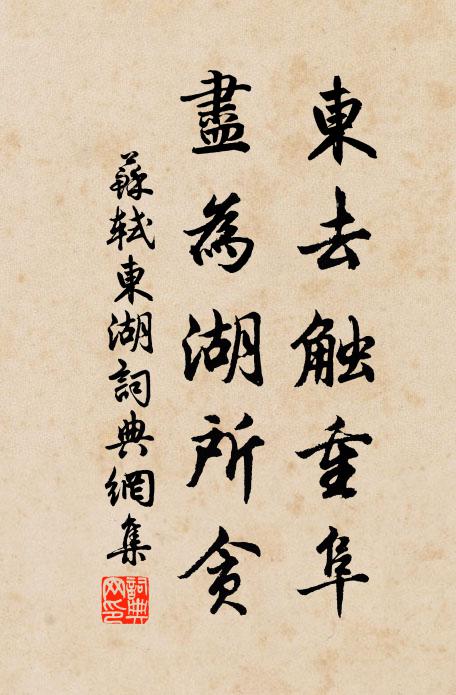 東去触重阜
盡為湖所貪
蘇軾東湖詞典網集
詞典網印